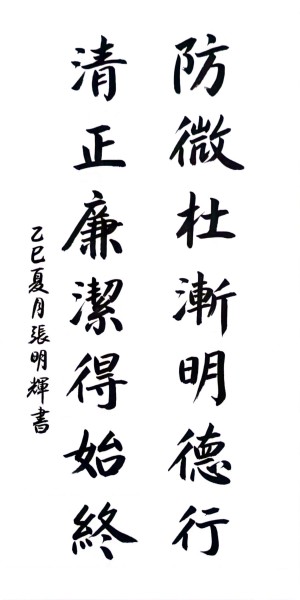 防微杜漸明德行
清正廉潔得始終
乙巳夏月張明輝書